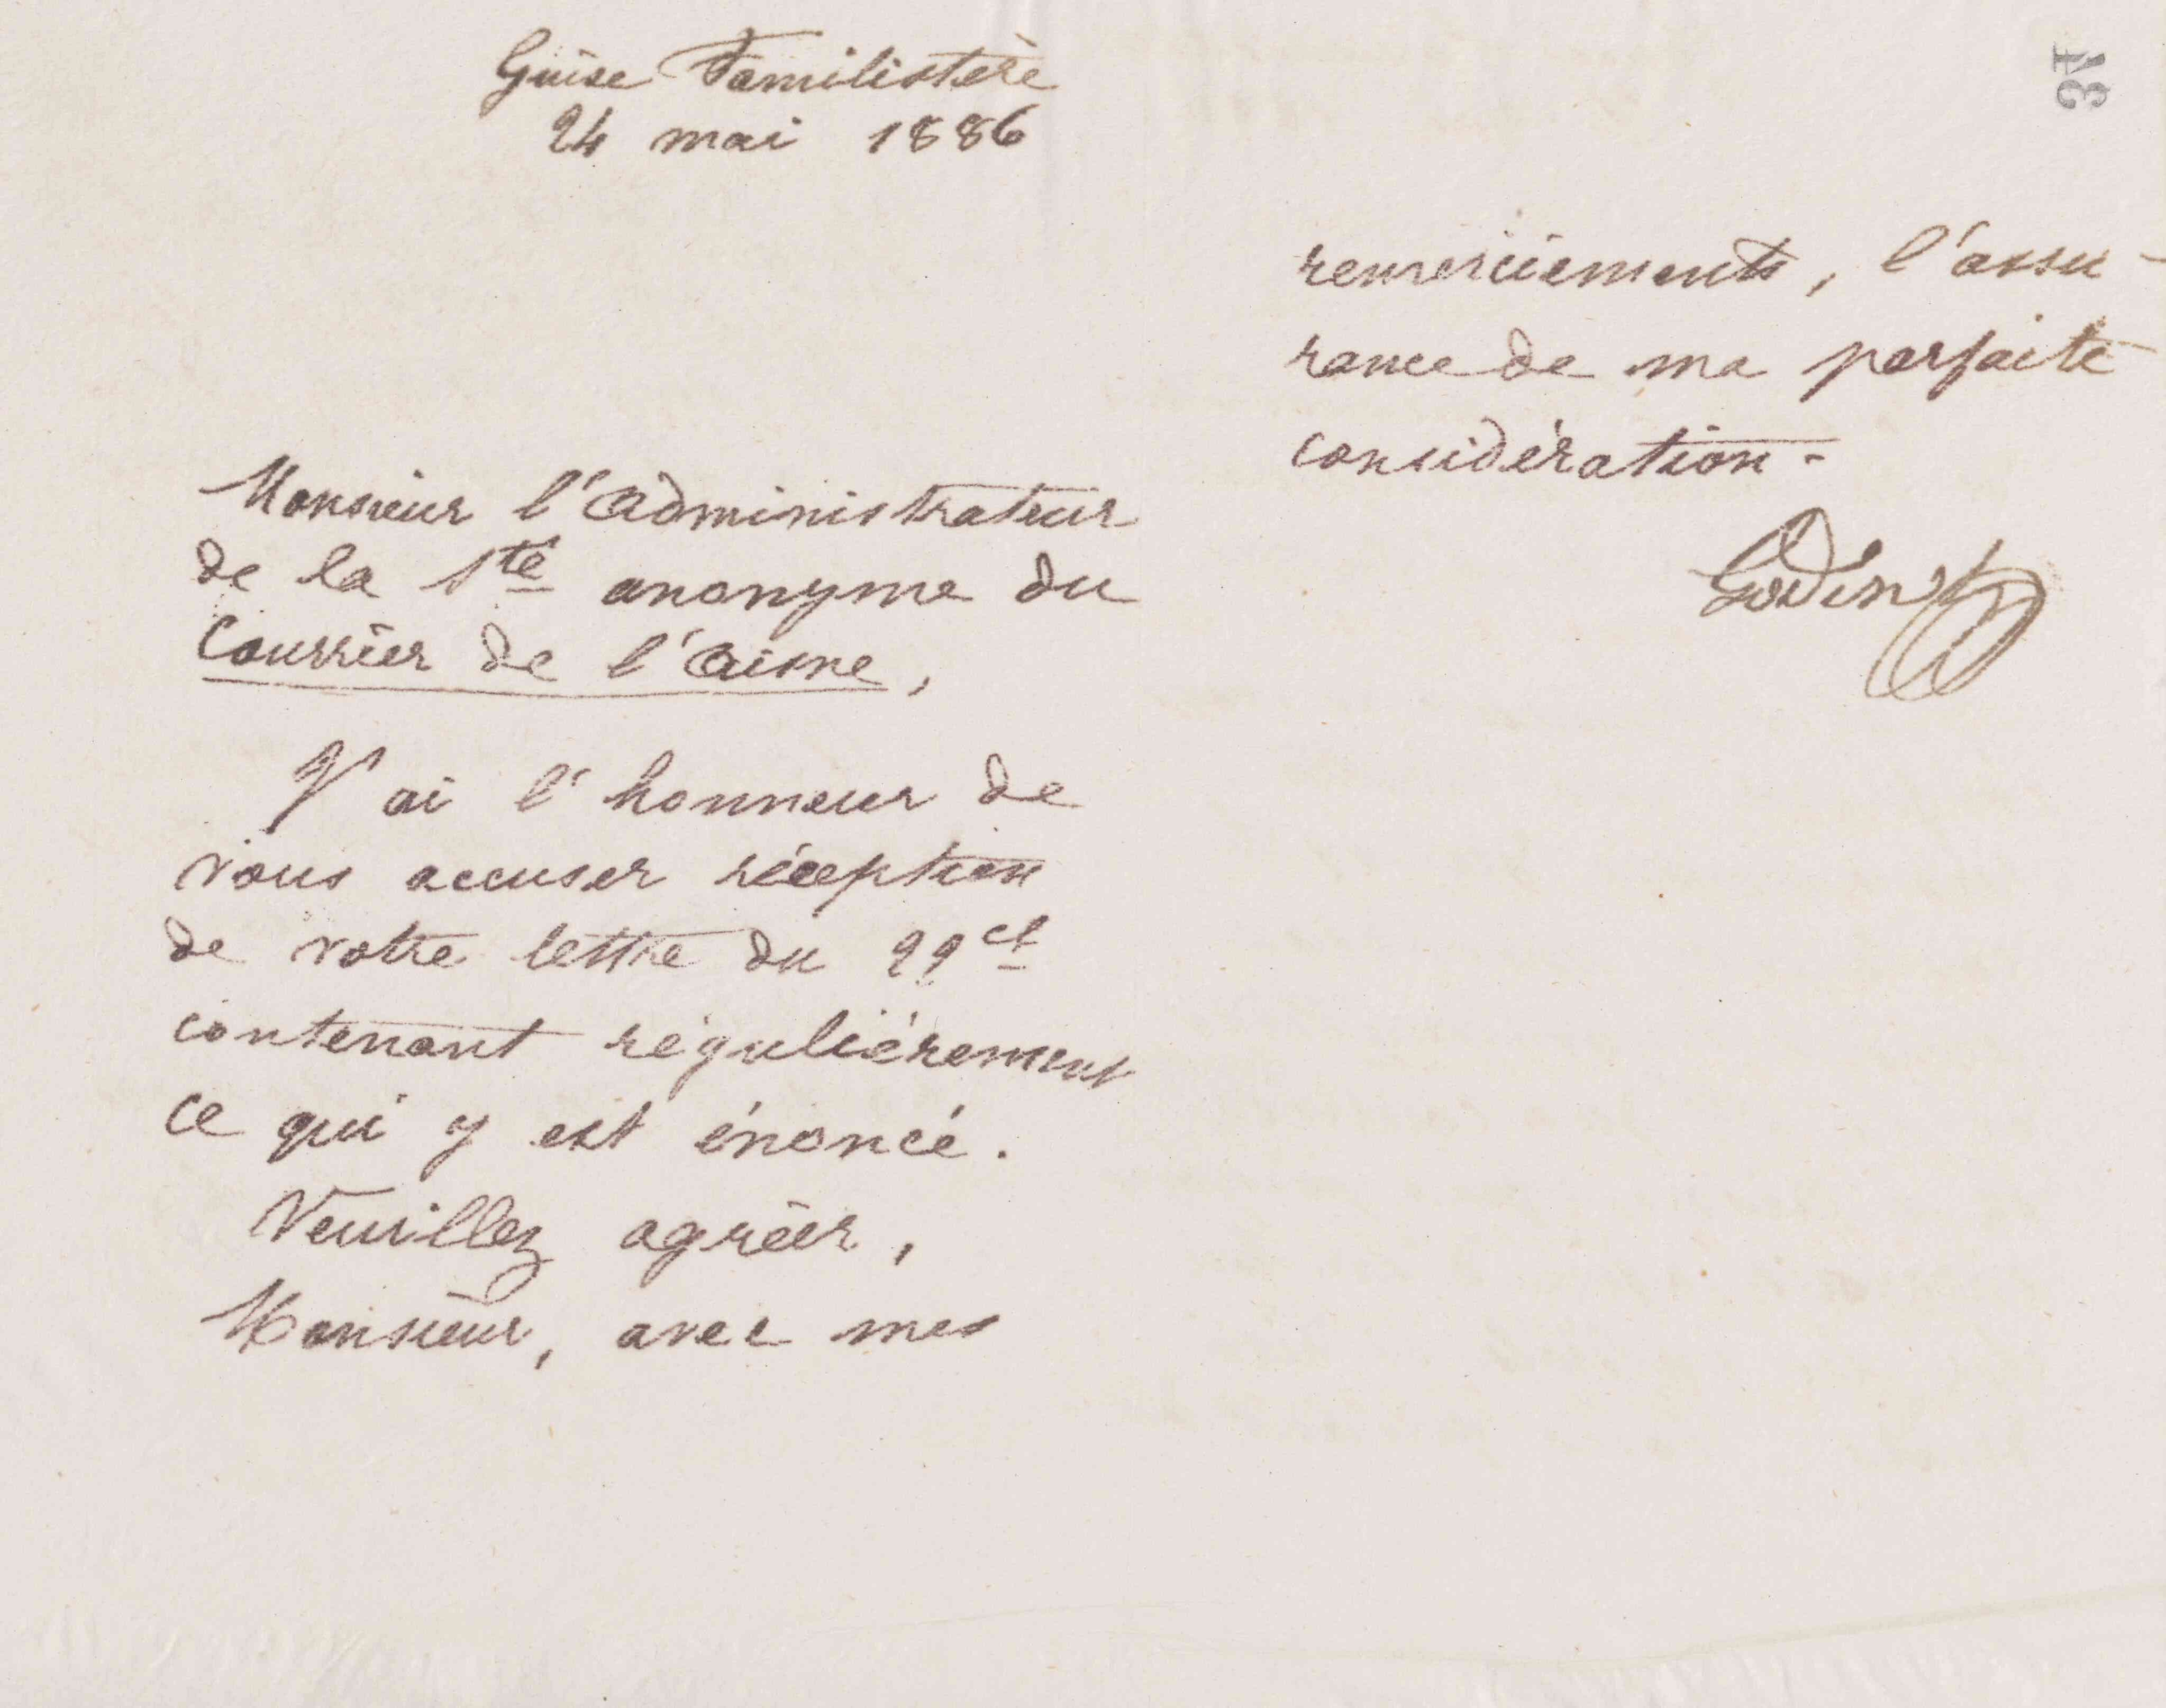 Guise Familistère
24 mai 1886
Monsieur l'Administrateur
de la Sté anonyme du
Courrier de l'Aisne,
J'ai l'honneur de
vous accuser réception
de votre lettre du 22 ct
contenant régulièrement
ce qui y est énoncé.
Veuillez agréer,
Monsieur, avec mes
37
remerciements, l'assu-
rance de ma parfaite
considération.
Godin